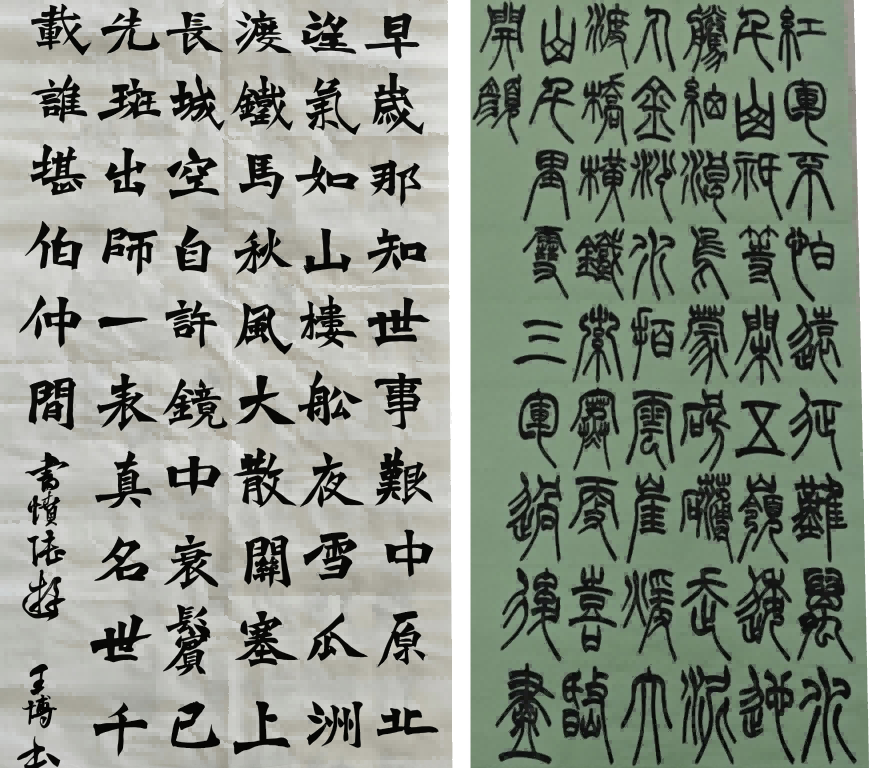 早歲那知世事艱中原北
望氣如山樓舩夜雪瓜洲
渡鐵馬秋風大散關塞上
長城空自許鏡中衰鬢已
先斑出師一表真名世千
載誰堪伯仲間
書憤陸游 王博书
紅軍不怕遠征難萬水
千山祇等閑五嶺逶迤
騰細浪烏蒙磅礴走泥
丸金沙水拍雲崖煖大
渡橋橫鐵索寒更喜岷
山千里雪三軍過後盡
開顏